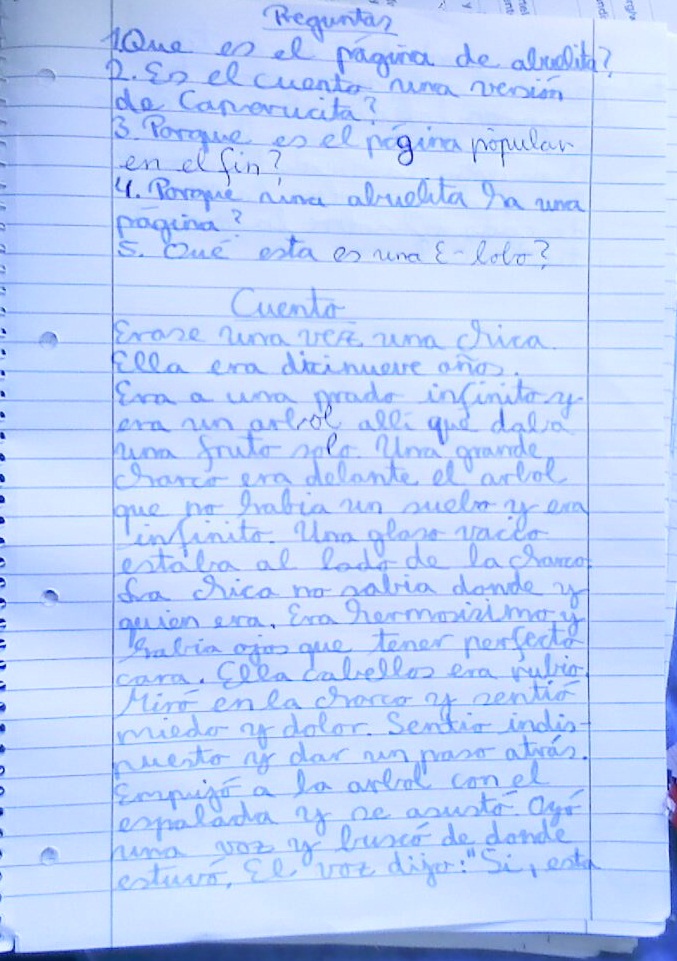 Preguntas
1. Que es el página de abuelita?
2. Es el cuento una versión
de Caperucita?
3. Porque es el página popular
en el fin?
4. Porque una abuelita ha una
página?
5. Qué esta es una E-lobo?
Cuento
Erase una vez una chica.
Ella era dicinueve años.
Era a una prado infinito y
era un arbol alli qué daba
una fruto solo. Una grande
charco era delante el arbol
que no habia un suelo y era
infinito. Una glaso vacio
estaba al lado de la charco.
La chica no sabia donde y
quien era. Era hermosisimo y
habia ojos que tener perfecto
cara. Ella cabellos era rubio.
Miró en la charco y sentió
miedo y dolor. Sentio indis-
puesto y dar un paso atrás.
Empujó a la arbol con el
espalada y se asustó. Oyó
una voz y buscó de donde
estuvó. El voz dijo: "Si, esta